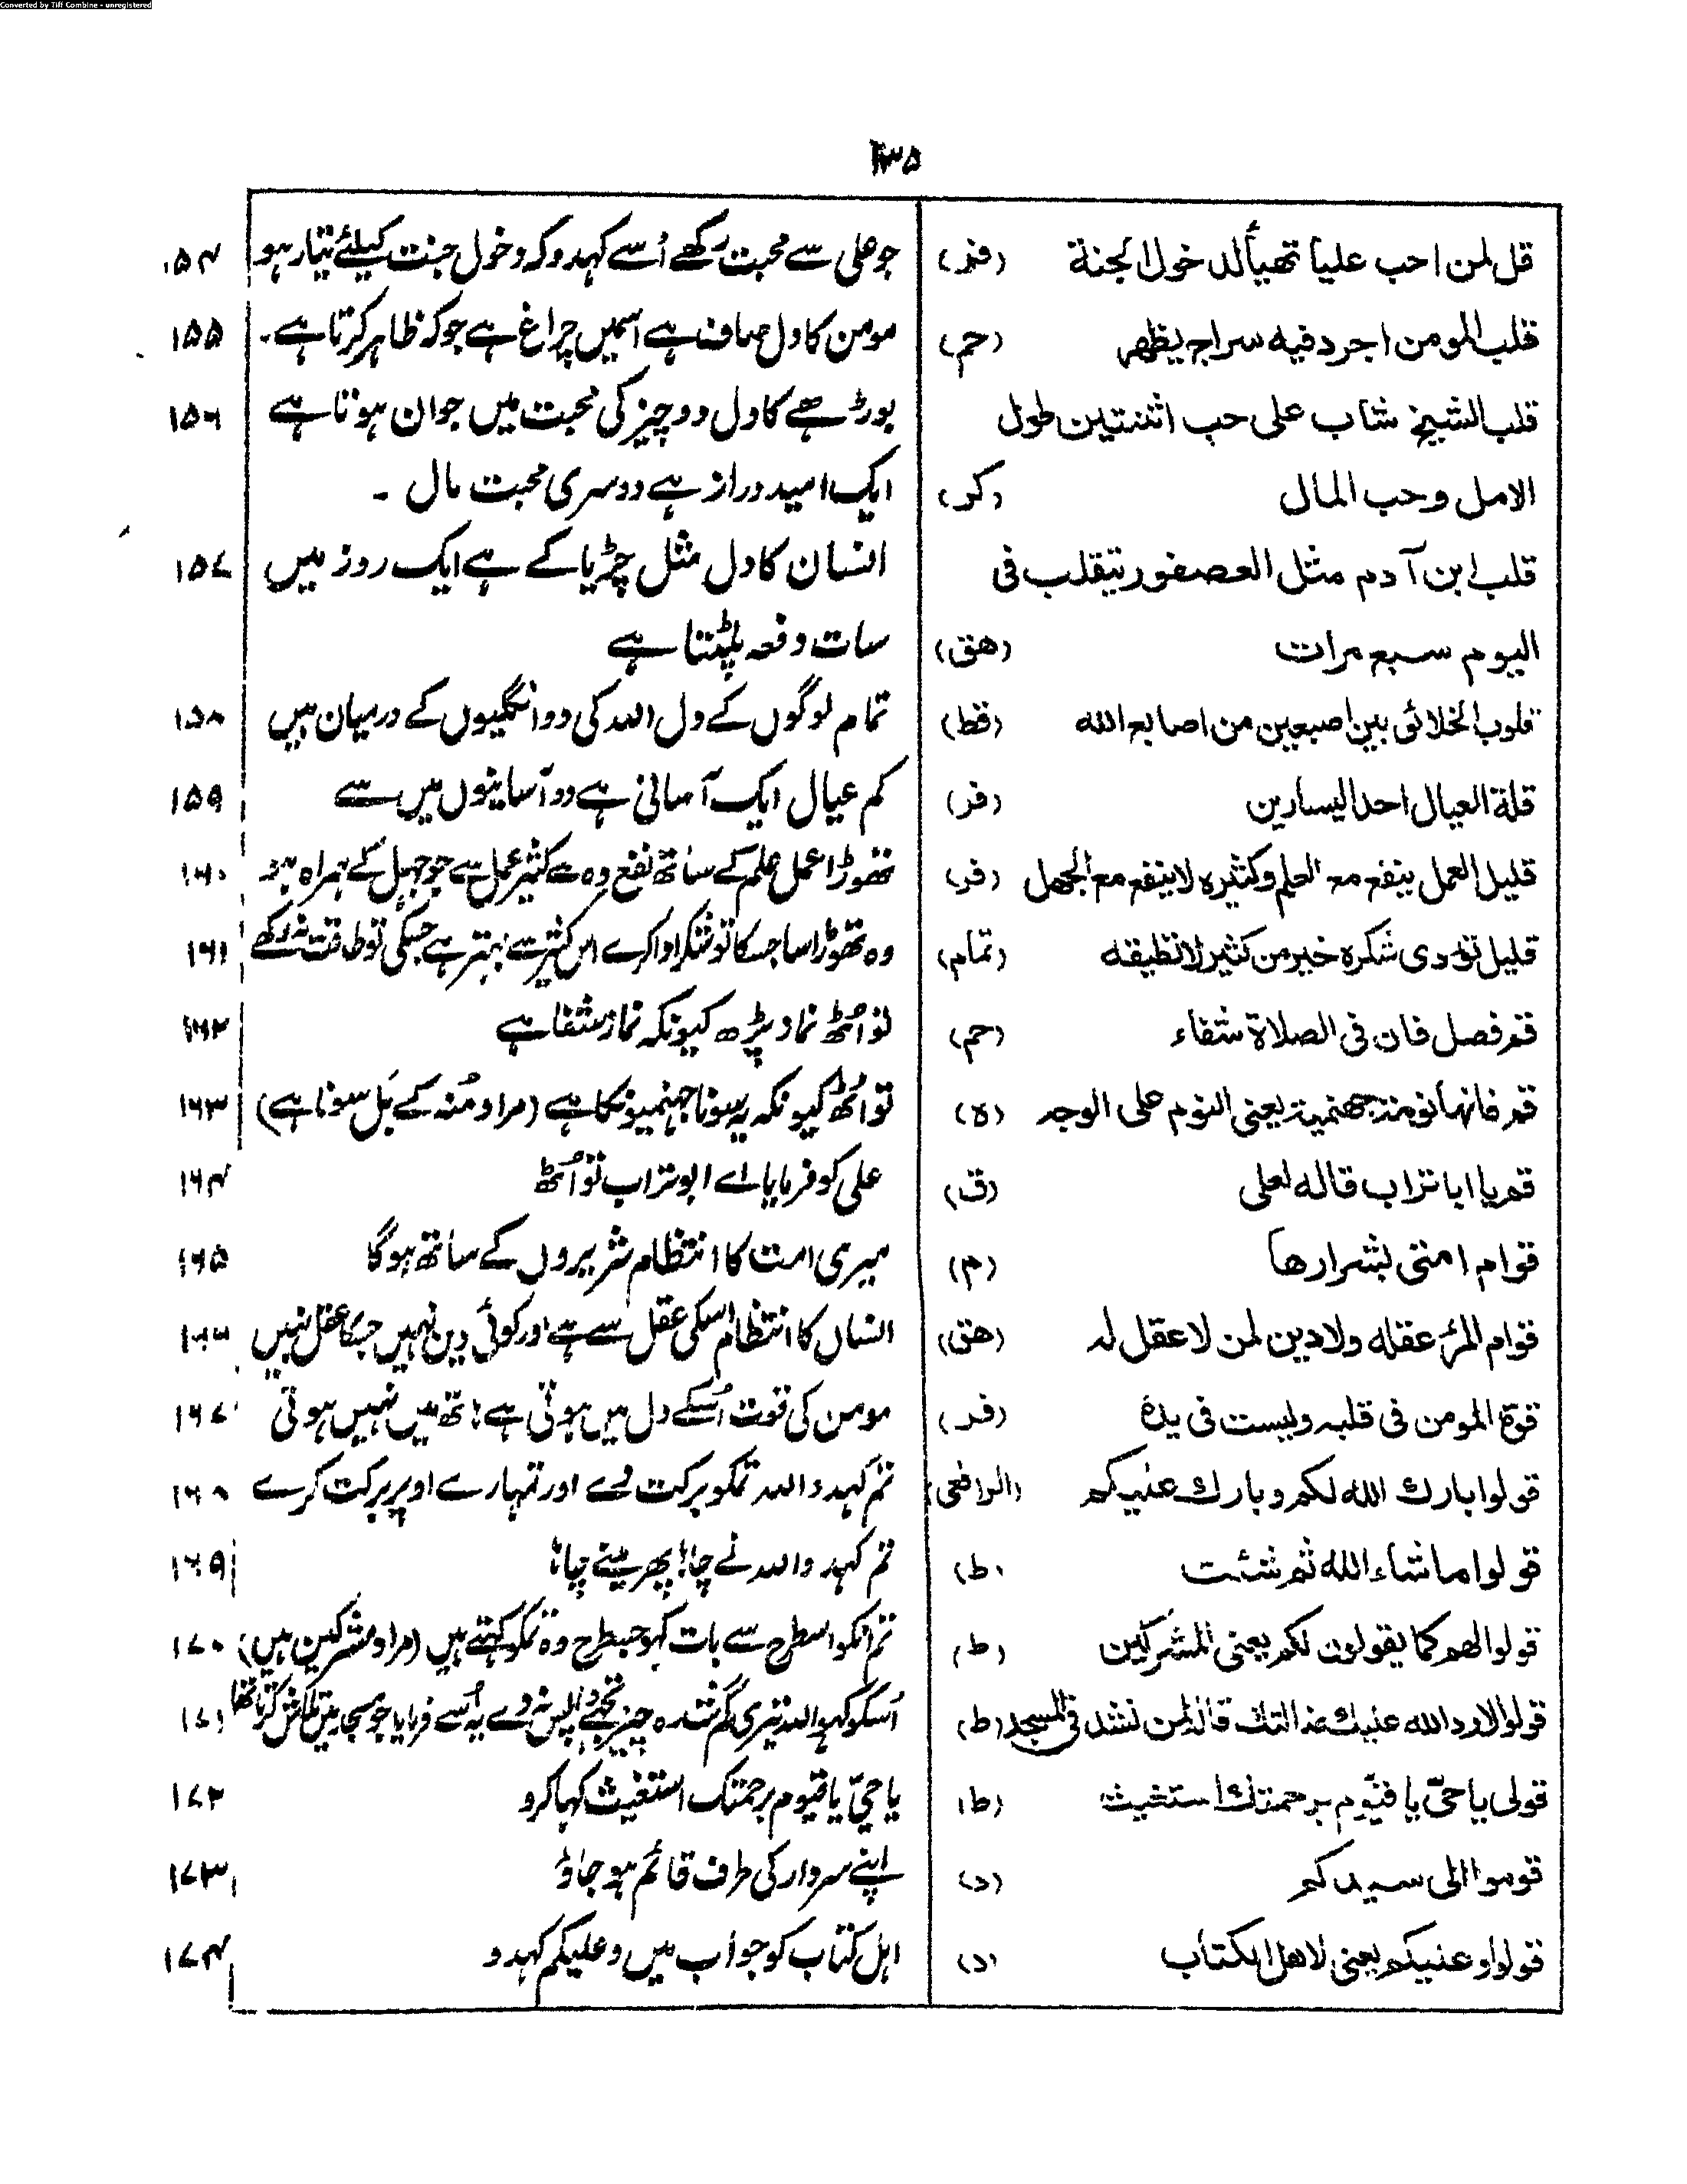 Converted by Tiff Combine - unregistered
۱۳۵
قل لمن احب علیا تهیأ لدخول الجنة (فر) جو علی سے محبت رکھے اُسے کہدو کہ دخول جنت کیلئے تیار ہو ۱۵۴
قلب المومن اجرد فیه سراج یظهر (حم) مومن کا دل صاف ہے اسمیں چراغ ہے جو کہ ظاہر کرتا ہے۔ ۱۵۵
قلب الشیخ شاب علی حب اثنتین طول بوڑھے کا دل دو چیز کی محبت میں جوان ہوتا ہے ۱۵۶
الامل وحب المال (کر) ایک امید دراز ہے دوسری محبت مال ۔
قلب ابن آدم مثل العصفور یتقلب فی انسان کا دل مثل چڑیا کے ہے ایک روز میں ۱۵۷
الیوم سبع مرات (هق) سات دفعہ پلٹتا ہے
قلوب الخلائق بین اصبعین من اصابع الله (قط) تمام لوگوں کے دل اللہ کی دو انگلیوں کے درمیان ہیں ۱۵۸
قلة العیال احد الیسارین (فر) کم عیال ایک آسانی ہے دو آسانیوں میں سے ۱۵۹
قلیل العمل ینفع مع العلم وکثیره لاینفع مع الجهل (فر) تھوڑا عمل علم کے ساتھ نفع دہ ہے کثیر عمل سے جو جہل کے ہمراہ ہو ۱۶۰
قلیل تؤدی شکره خیر من کثیر لا تطیقه (تمام) وہ تھوڑا سا جسکا تو شکر ادا کرے اس کثیر سے بہتر ہے جسکی تو طاقت نہ رکھے ۱۶۱
قم فصل فان فی الصلاة شفاء (حم) تو اُٹھ نماز پڑھ کیونکہ نماز شفا ہے ۱۶۲
قم فانها نومة جهنمیة یعنی النوم علی الوجه (ه) تو اُٹھ کیونکہ یہ سونا جہنمیونکا ہے (مراد مُنہ کے بَل سونا ہے) ۱۶۳
قم یا ابا تراب قاله لعلی (ق) علی کو فرمایا اے ابو تراب تو اُٹھ ۱۶۴
قوام امتی بشرارها (م) میری امت کا انتظام شریروں کے ساتھ ہوگا ۱۶۵
قوام المرء عقله ولا دین لمن لا عقل له (هق) انسان کا انتظام اسکی عقل سے ہے اور کوئی دین نہیں جسکا عقل نہیں ۱۶۶
قوة المومن فی قلبه ولیست فی یده (فر) مومن کی قوت اُسکے دل میں ہوتی ہے ہاتھ میں نہیں ہوتی ۱۶۷
قولوا بارك الله لکم وبارك علیکم (الرافعی) تم کہدو اللہ تمکو برکت دے اور تمہارے اوپر برکت کرے ۱۶۸
قولوا ما شاء الله ثم شئت (ط) تم کہدو اللہ نے چاہا پھر مینے چاہا ۱۶۹
قولوا لهم کما یقولون لکم یعنی المشرکین (ط) تم انکو اسطرح سے بات کہو جسطرح وہ تمکو کہتے ہیں (مراد مشرکین ہیں) ۱۷۰
قولوا لا رد الله علیك ضالتك قاله لمن نشد فی المسجد (ط) اُسکو کہو اللہ تیری گم شدہ چیز تجھے واپس نہ دے یہ اُسے فرمایا جو مسجد میں تلاش کرتا تھا ۱۷۱
قولی یا حیّ یا قیّوم برحمتك استغیث (ط) یا حیّ یا قیوم برحمتک استغیث کہا کرو ۱۷۲
قوموا الی سیدکم (د) اپنے سردار کی طرف قائم ہو جاؤ ۱۷۳
قولوا وعلیکم یعنی لاهل الکتاب (د) اہل کتاب کو جواب میں وعلیکم کہدو ۱۷۴